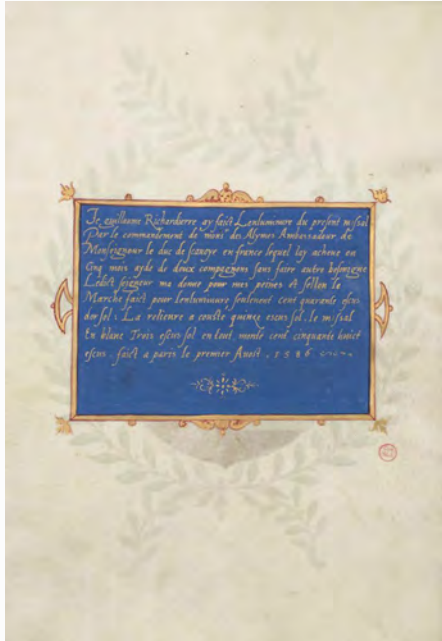 Je guillaume Richardierre ay faict Lenluminure du present missal
Par le commandement de monsr des Alymes Ambassadeur de
Monseigneur le duc de scavoye en france lequel iay acheve en
Cinq mois ayde de deux compagnons sans faire autre besongne
Ledict seigneur ma donne pour mes peines et sellon le
Marche faict pour lenluminure seulement cent quarante escus
dor sol : La relieure a couste quinze escus sol . le missal
En blanc Trois escus sol en tout monte cent cinquante huict
escus . faict a paris le premier Aoust . 1586